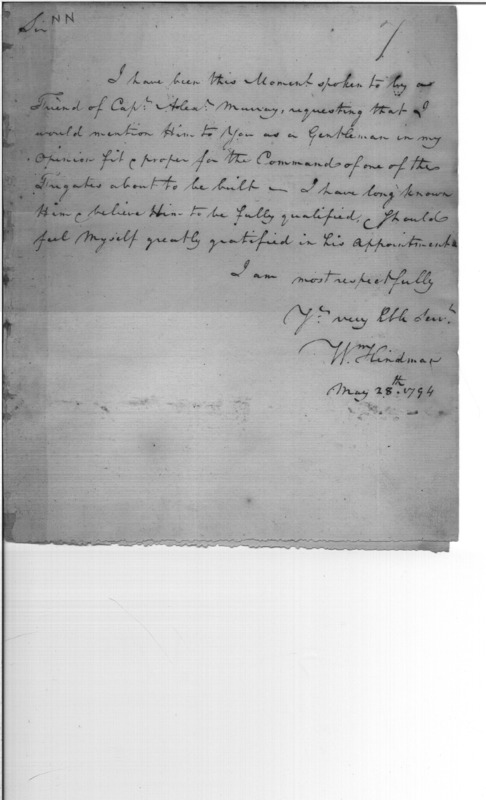 Sir NN
7
I have been this Moment spoken to by a
Friend of Capt. Alexr. Murray, requesting that I
would mention Him to You as a Gentleman in my
opinion fit & proper for the Command of one of the
Frigates about to be built — I have long known
Him & believe Him to be fully qualified, & Should
feel Myself greatly gratified in his appointment
I am most respectfully
Yr. very Obt Servt.
Wm Hindman
May 28th. 1794